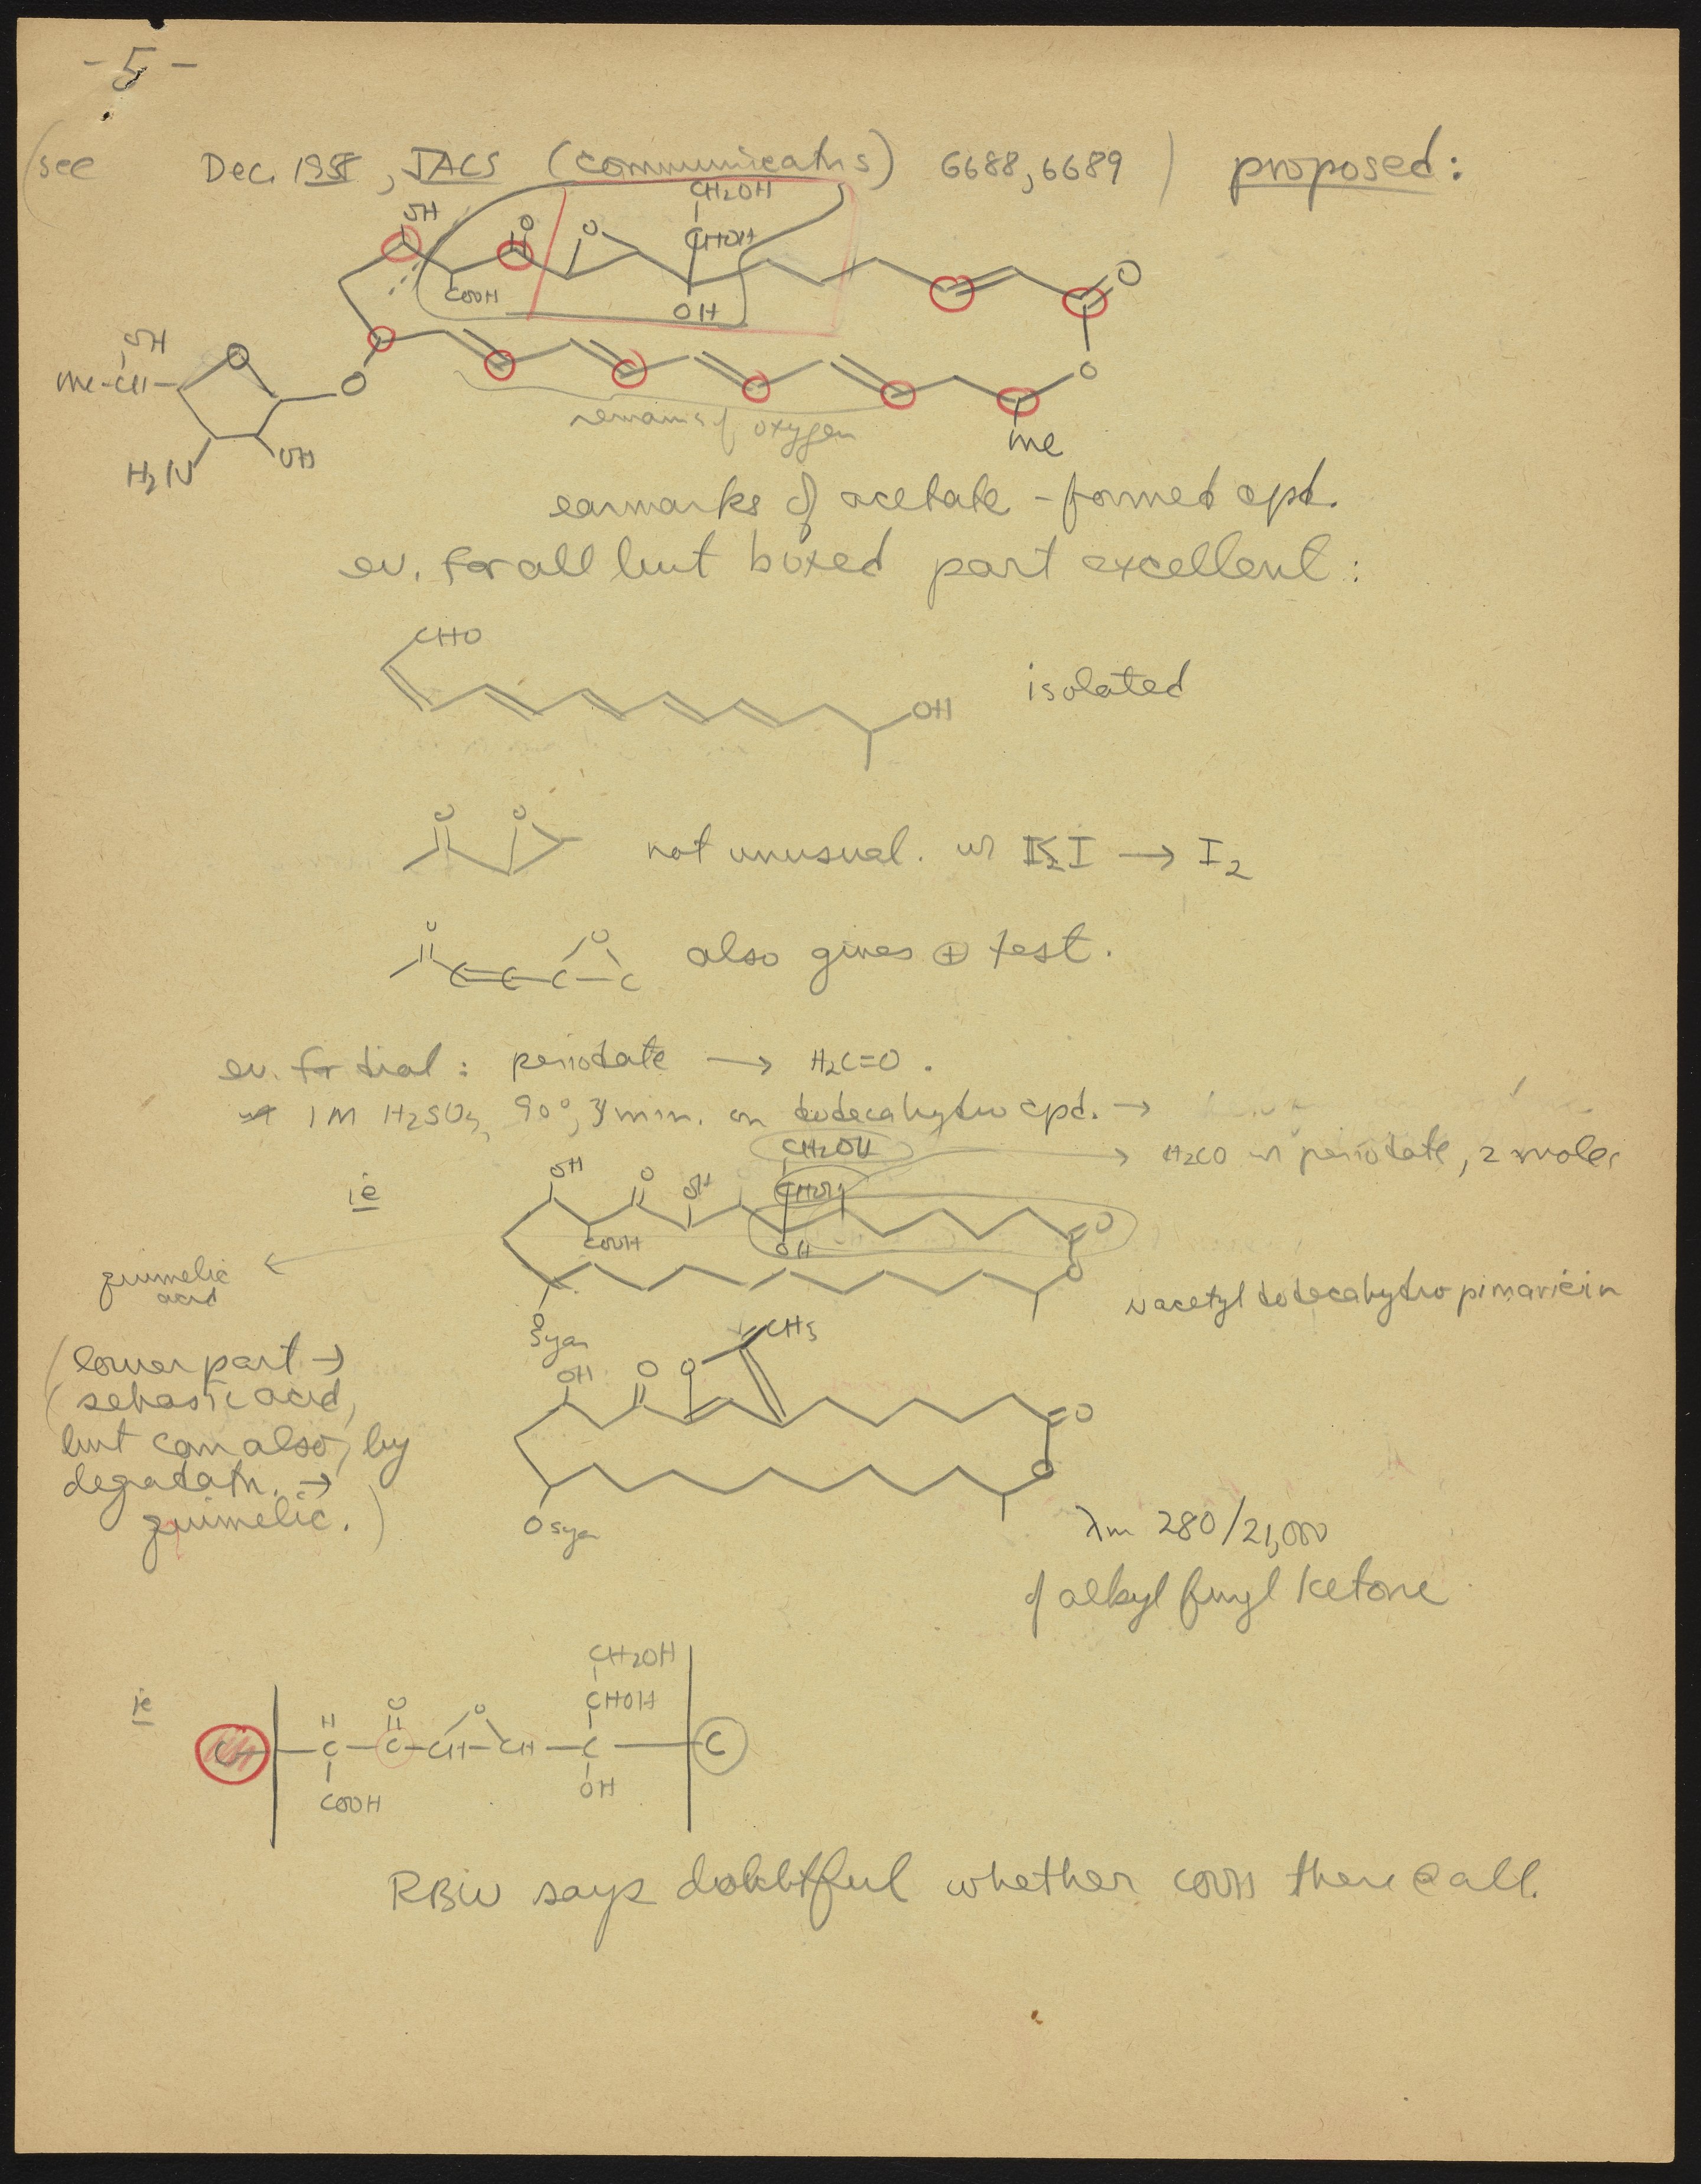 - 5 -
(see Dec. 1958, JACS (communicatns) 6688, 6689) proposed:
CH2OH
OH
O
O
CHOH
O
COOH
OH
OH
Me-CH-
O
O
O
remains of oxygen
Me
H2N
OH
earmarks of acetate-formed cpd.
ev. for all but boxed part excellent:
CHO
OH
isolated
O
O
not unusual. w KI → I2
O
O
C=C-C-C
also gives ⊕ test.
ev. for trial: periodate → H2C=O.
1M H2SO4, 90°, 3 min. on dodecahydro cpd. →
CH2OH
→ H2CO w periodate, 2 moles
ie
OH
O
OH
CHOH
COOH
OH
O
O
pimelic
acid
←
N acetyl dodecahydropimaricin
O
Sugar
CH3
(lower part →
sebasic acid,
but can also, by
degradatn. →
pimelic.)
OH
O
O
O
O
O Sugar
λm 280/21,000
of alkyl furyl ketone
CH2OH
ie
H
O
O
CHOH
CH
C-C-CH-CH-C
C
COOH
OH
RBW says doubtful whether COOH there @ all.